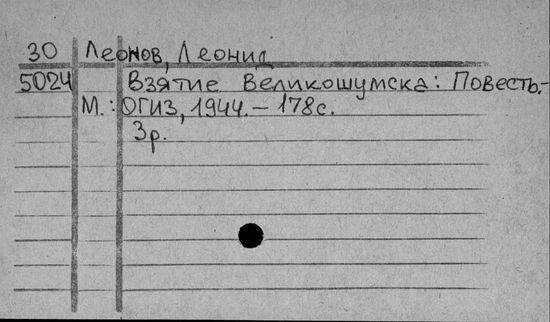 30 Леонов, Леонид
5024 Взятие Великошумска: Повесть.-
М.: ОГИЗ, 1944. – 178с.
3р.